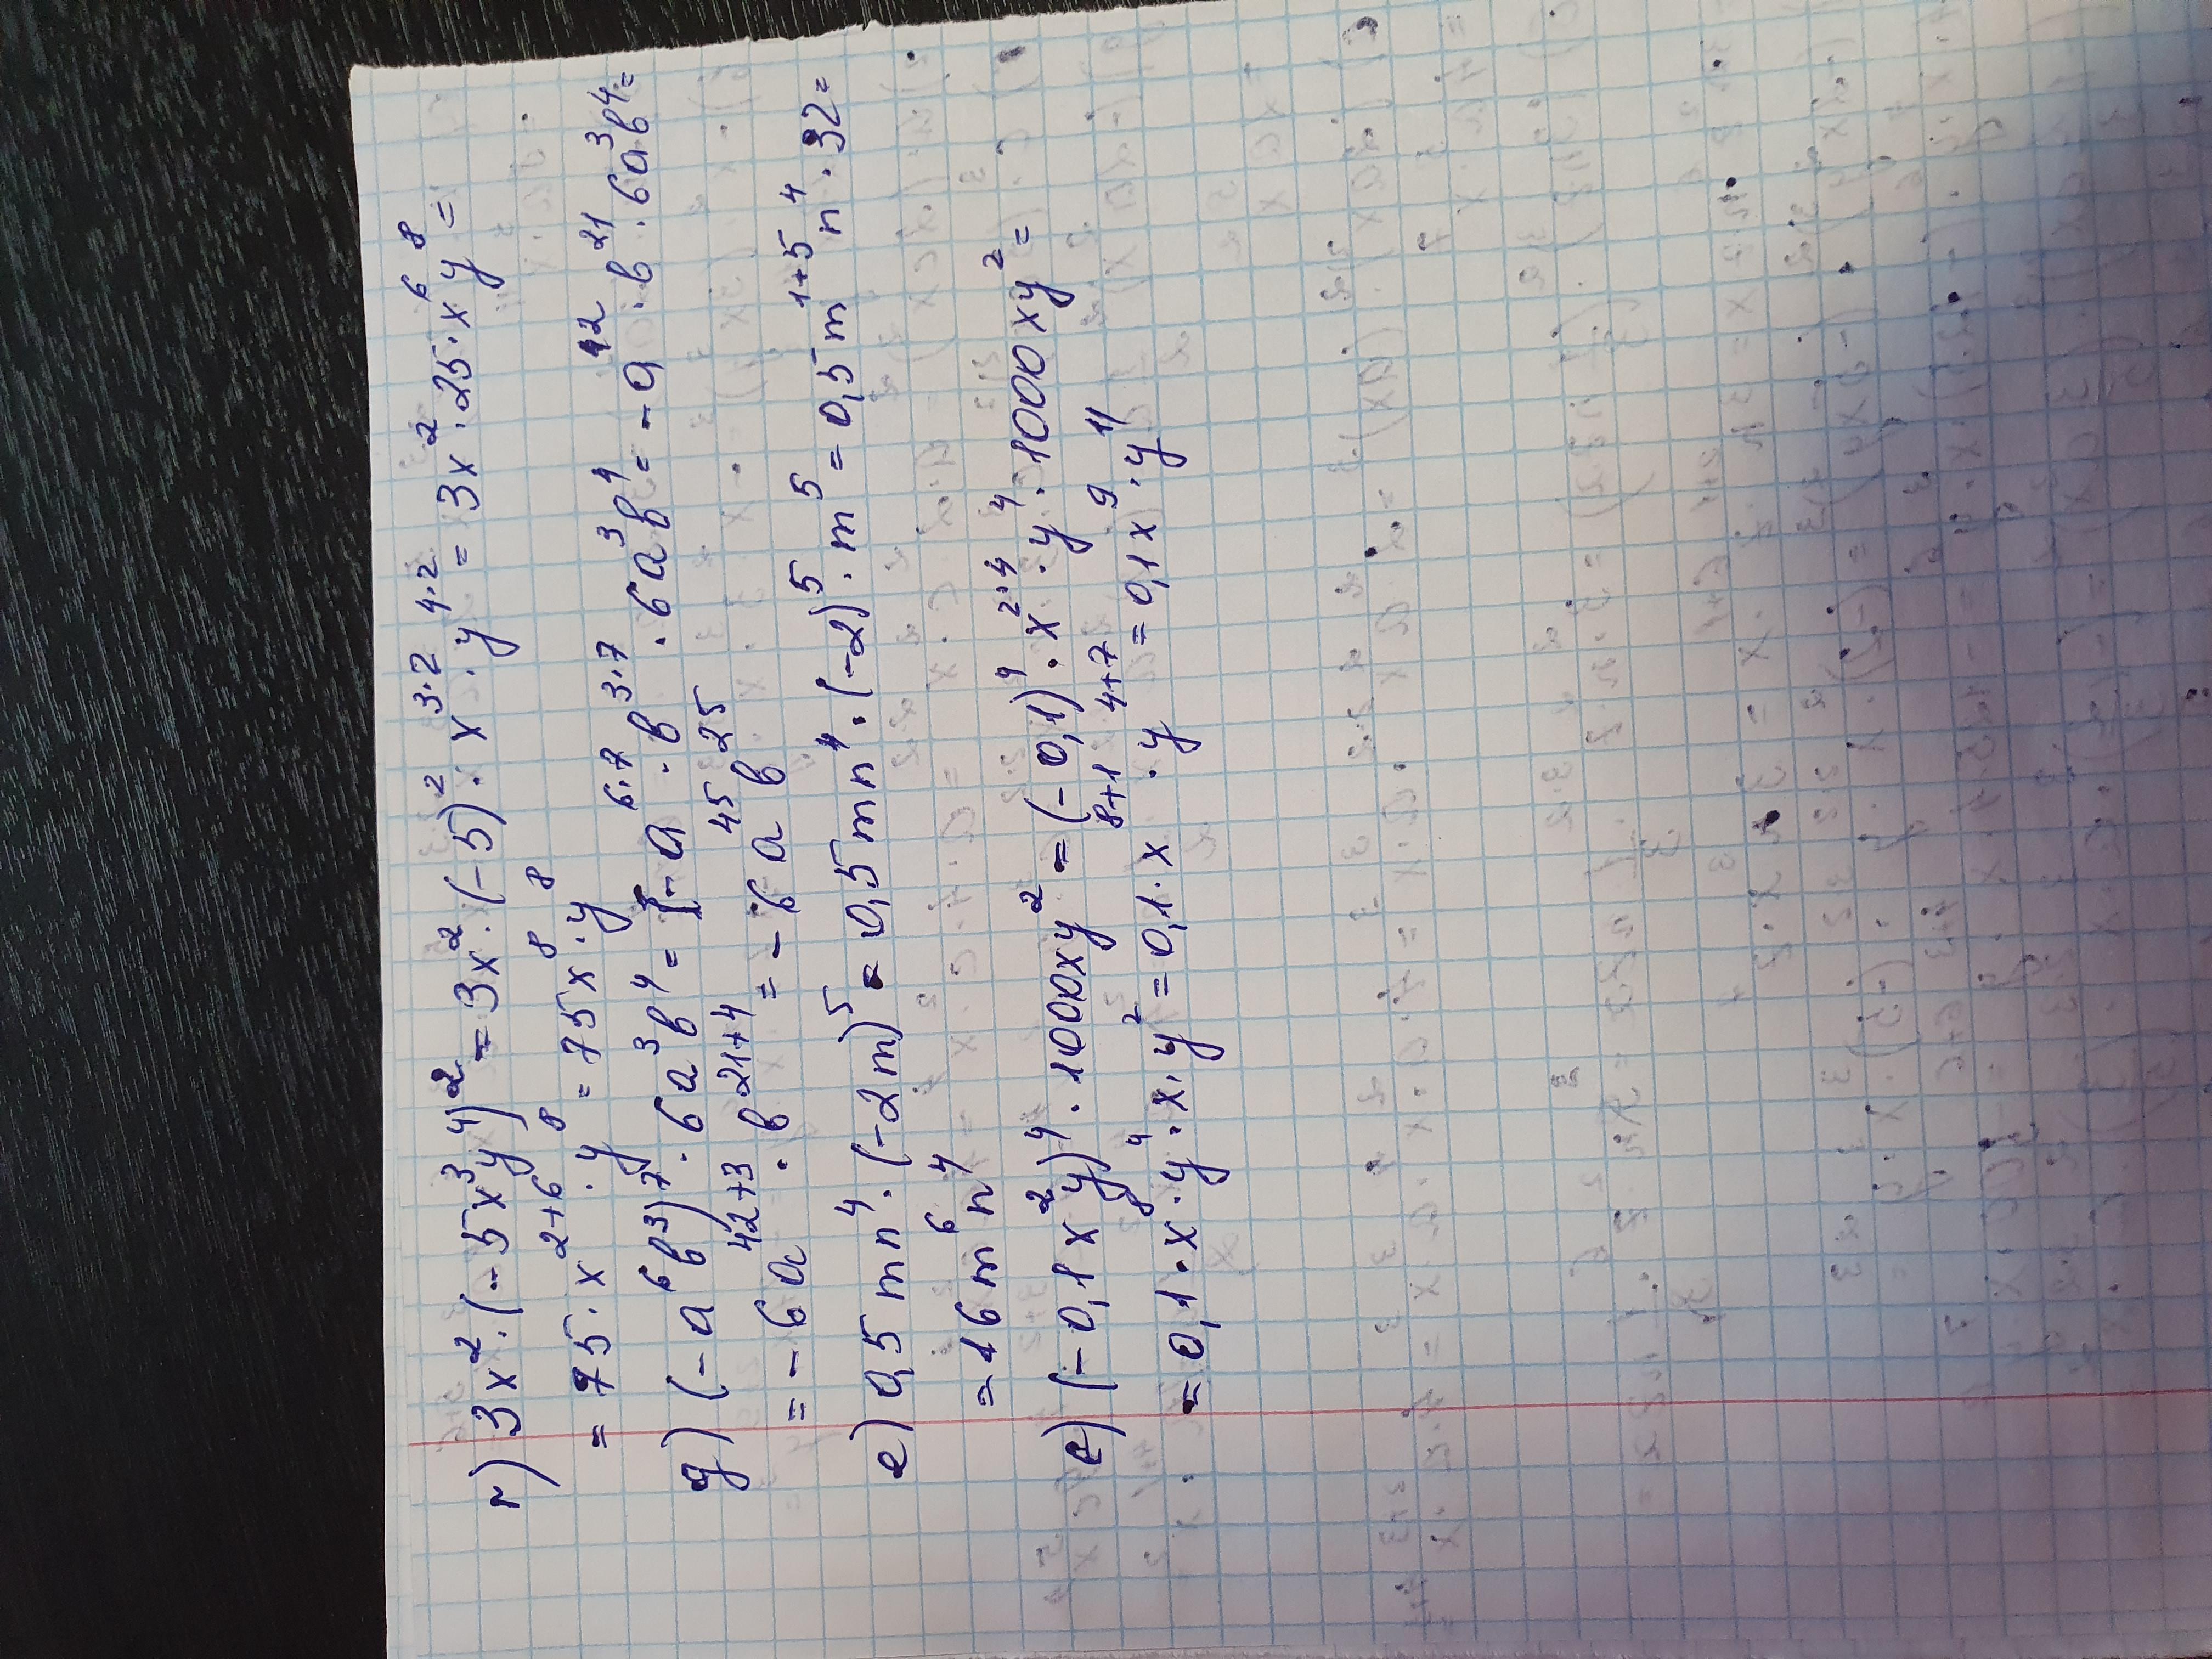 г) 3x²·(-5x³y⁴)² = 3x²·(-5)²·x³·²·y⁴·² = 3x²·25·x⁶y⁸ =
= 75·x²⁺⁶·y⁸ = 75x⁸·y⁸
д) (-a⁶b³)⁷·6a³b⁴ = -a⁶·⁷·b³·⁷·6a³b⁴ = -a⁴²·b²¹·6a³b⁴ =
= -6a⁴²⁺³·b²¹⁺⁴ = -6a⁴⁵b²⁵
е) 0,5mn⁴·(-2m)⁵ = 0,5mn⁴·(-2)⁵·m⁵ = 0,5m¹⁺⁵n⁴·32 =
= 16m⁶n⁴
е) (-0,1x²y)⁴·1000xy² = (-0,1)⁴·x²·⁴·y⁴·1000xy² =
= 0,1·x⁸·y⁴·x·y² = 0,1·x⁸⁺¹·y⁴⁺⁷ = 0,1x⁹·y¹¹